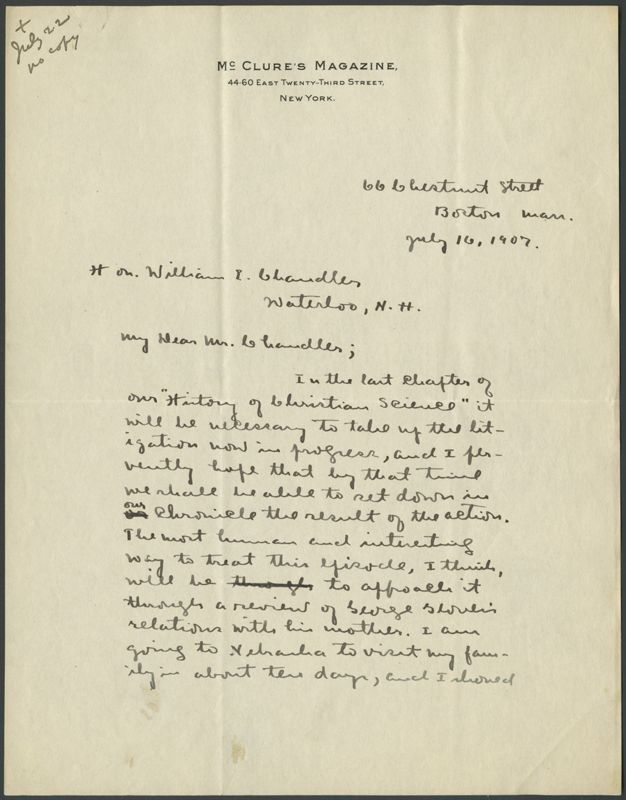 x
July 22
no copy
McClure's Magazine,
44-60 East Twenty-Third Street,
New York.
66 Chestnut Street
Boston Mass.
July 16, 1907.
Hon. William I. Chandler
Waterloo, N. H.
My Dear Mr. Chandler;
In the last chapter of
our "History of Christian Science" it
will be necessary to take up the lit-
igation now in progress, and I fer-
vently hope that by that time
we shall be able to set down in
our Chronicle the result of the action.
The most human and interesting
way to treat this episode, I think,
will be through to approach it
through a review of George Glover's
relations with his mother. I am
going to Nebraska to visit my fam-
ily in about ten days, and I should